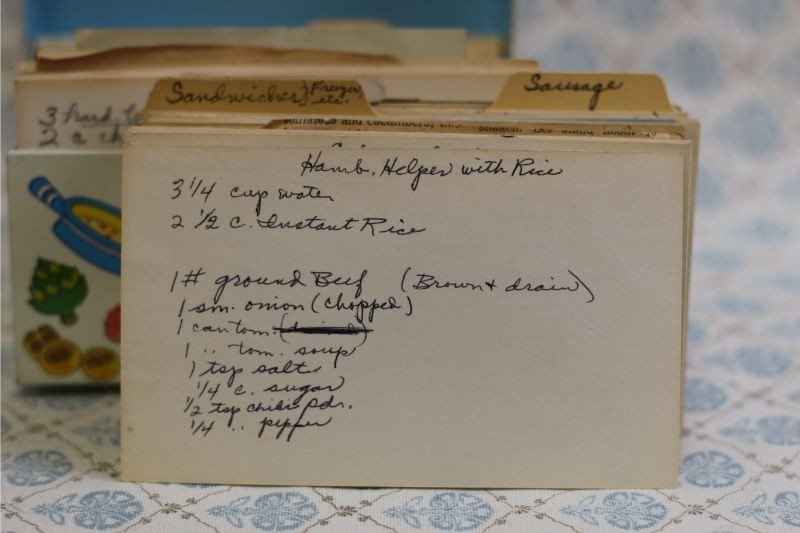 Sandwiches, Freezer, etc.
Sausage
3 Hard
2 c
tomatoes and cucumbers, this
Hamb. Helper with Rice
3 1/4 cup water
2 1/2 c. Instant Rice
1 # ground Beef (Brown + drain)
1 sm. onion (chopped)
1 can tom.
1 " tom. soup
1 tsp salt
1/4 c. sugar
1/2 tsp chili pdr.
1/4 " pepper